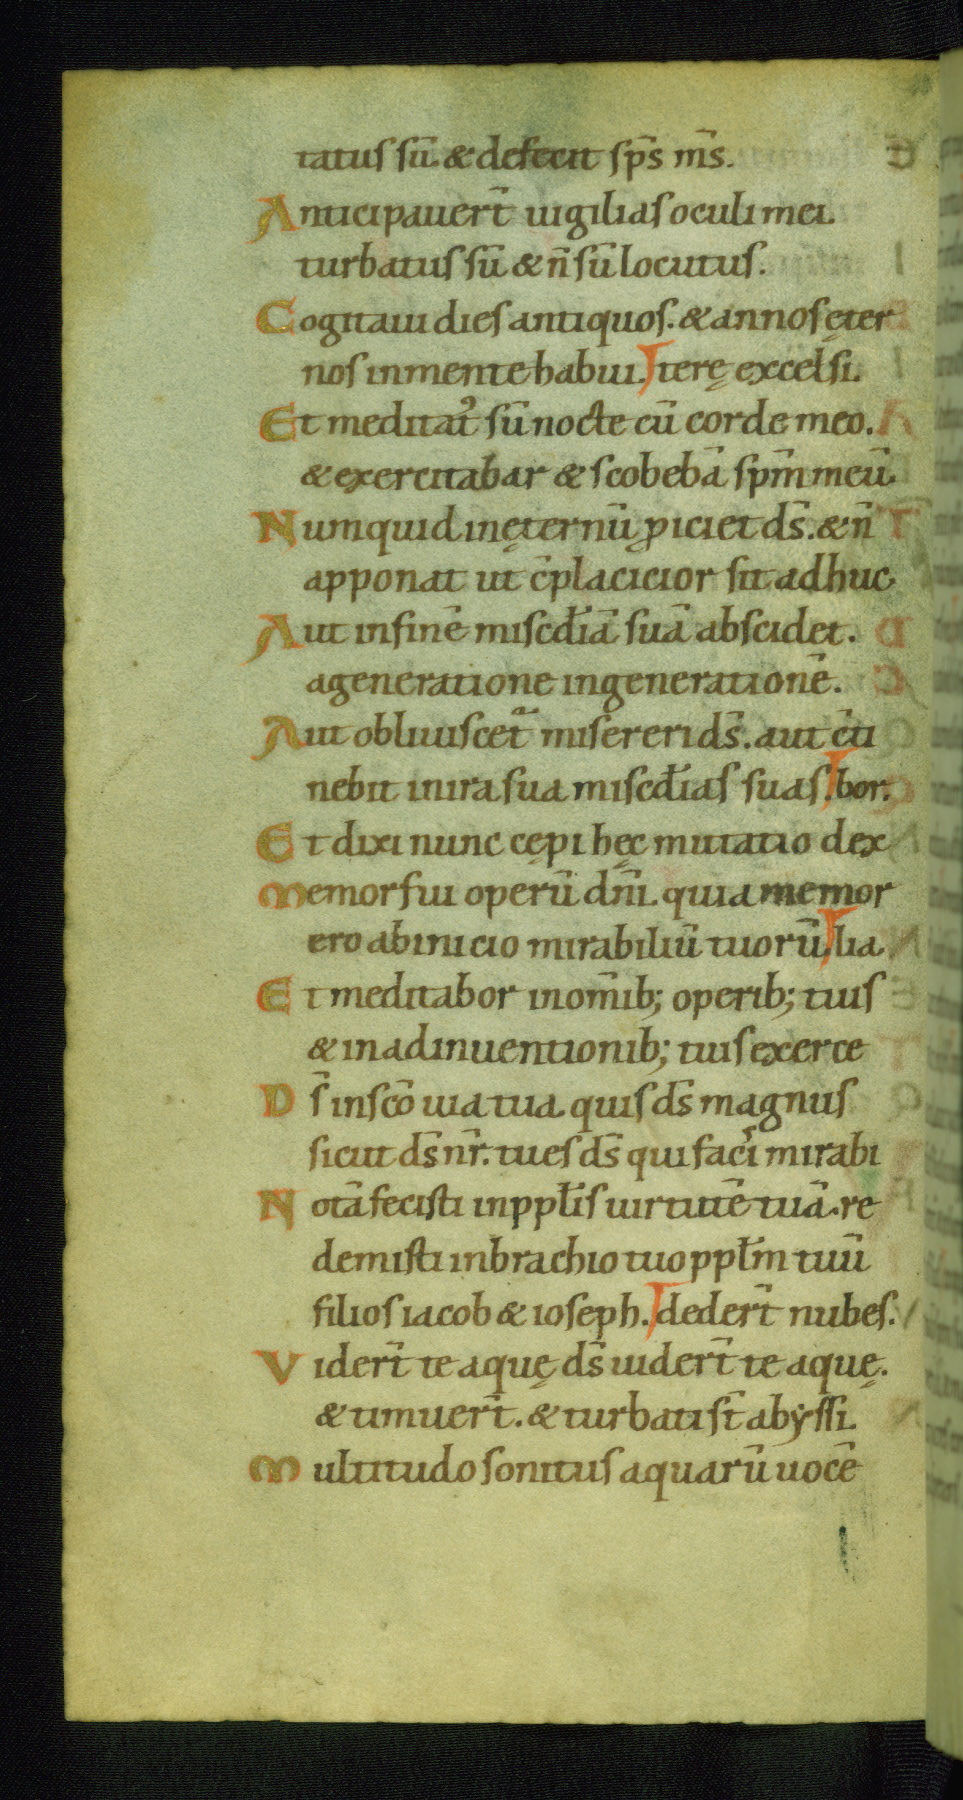 tatus sū & defecit sp̄s m̄s.
Anticipauer̄t uigilias oculi mei.
turbatus sū & n̄ sū locutus.
Cogitaui dies antiquos. & annos ęter
nos in mente habui. terę excelsi.
Et meditatꝰ sū nocte cū corde meo.
& exercitabar & scobebā sp̄m meū
Numquid in ęternū ꝓiciet ds̄. & n̄
apponat ut c̄placicior sit adhuc
Aut in finē misc̄diā suā abscidet.
a generatione in generationē.
Aut obliuiscet᷑ misereri ds̄. aut c̄ti
nebit in ira sua misc̄dias suas. bor.
Et dixi nunc cępi hęc mutatio dex
Memor fui operū dn̄i. quia memor
ero ab inicio mirabiliū tuorū. lia.
Et meditabor in om̄ib; operib; tuis
& in adinuentionib; tuis exerce
Ds̄ in sc̄o uia tua. quis ds̄ magnus
sicut ds̄ nr̄. tu es ds̄ qui facis mirabi
Notā fecisti in pplīs uirtutē tuā. re
demisti in brachio tuo pplm̄ tuū
filios iacob & ioseph. deder̄t nubes.
Vider̄t te aquę ds̄ uider̄t te aquę.
& timuer̄t. & turbati st̄ abyssi.
Multitudo sonitus aquarū uocē